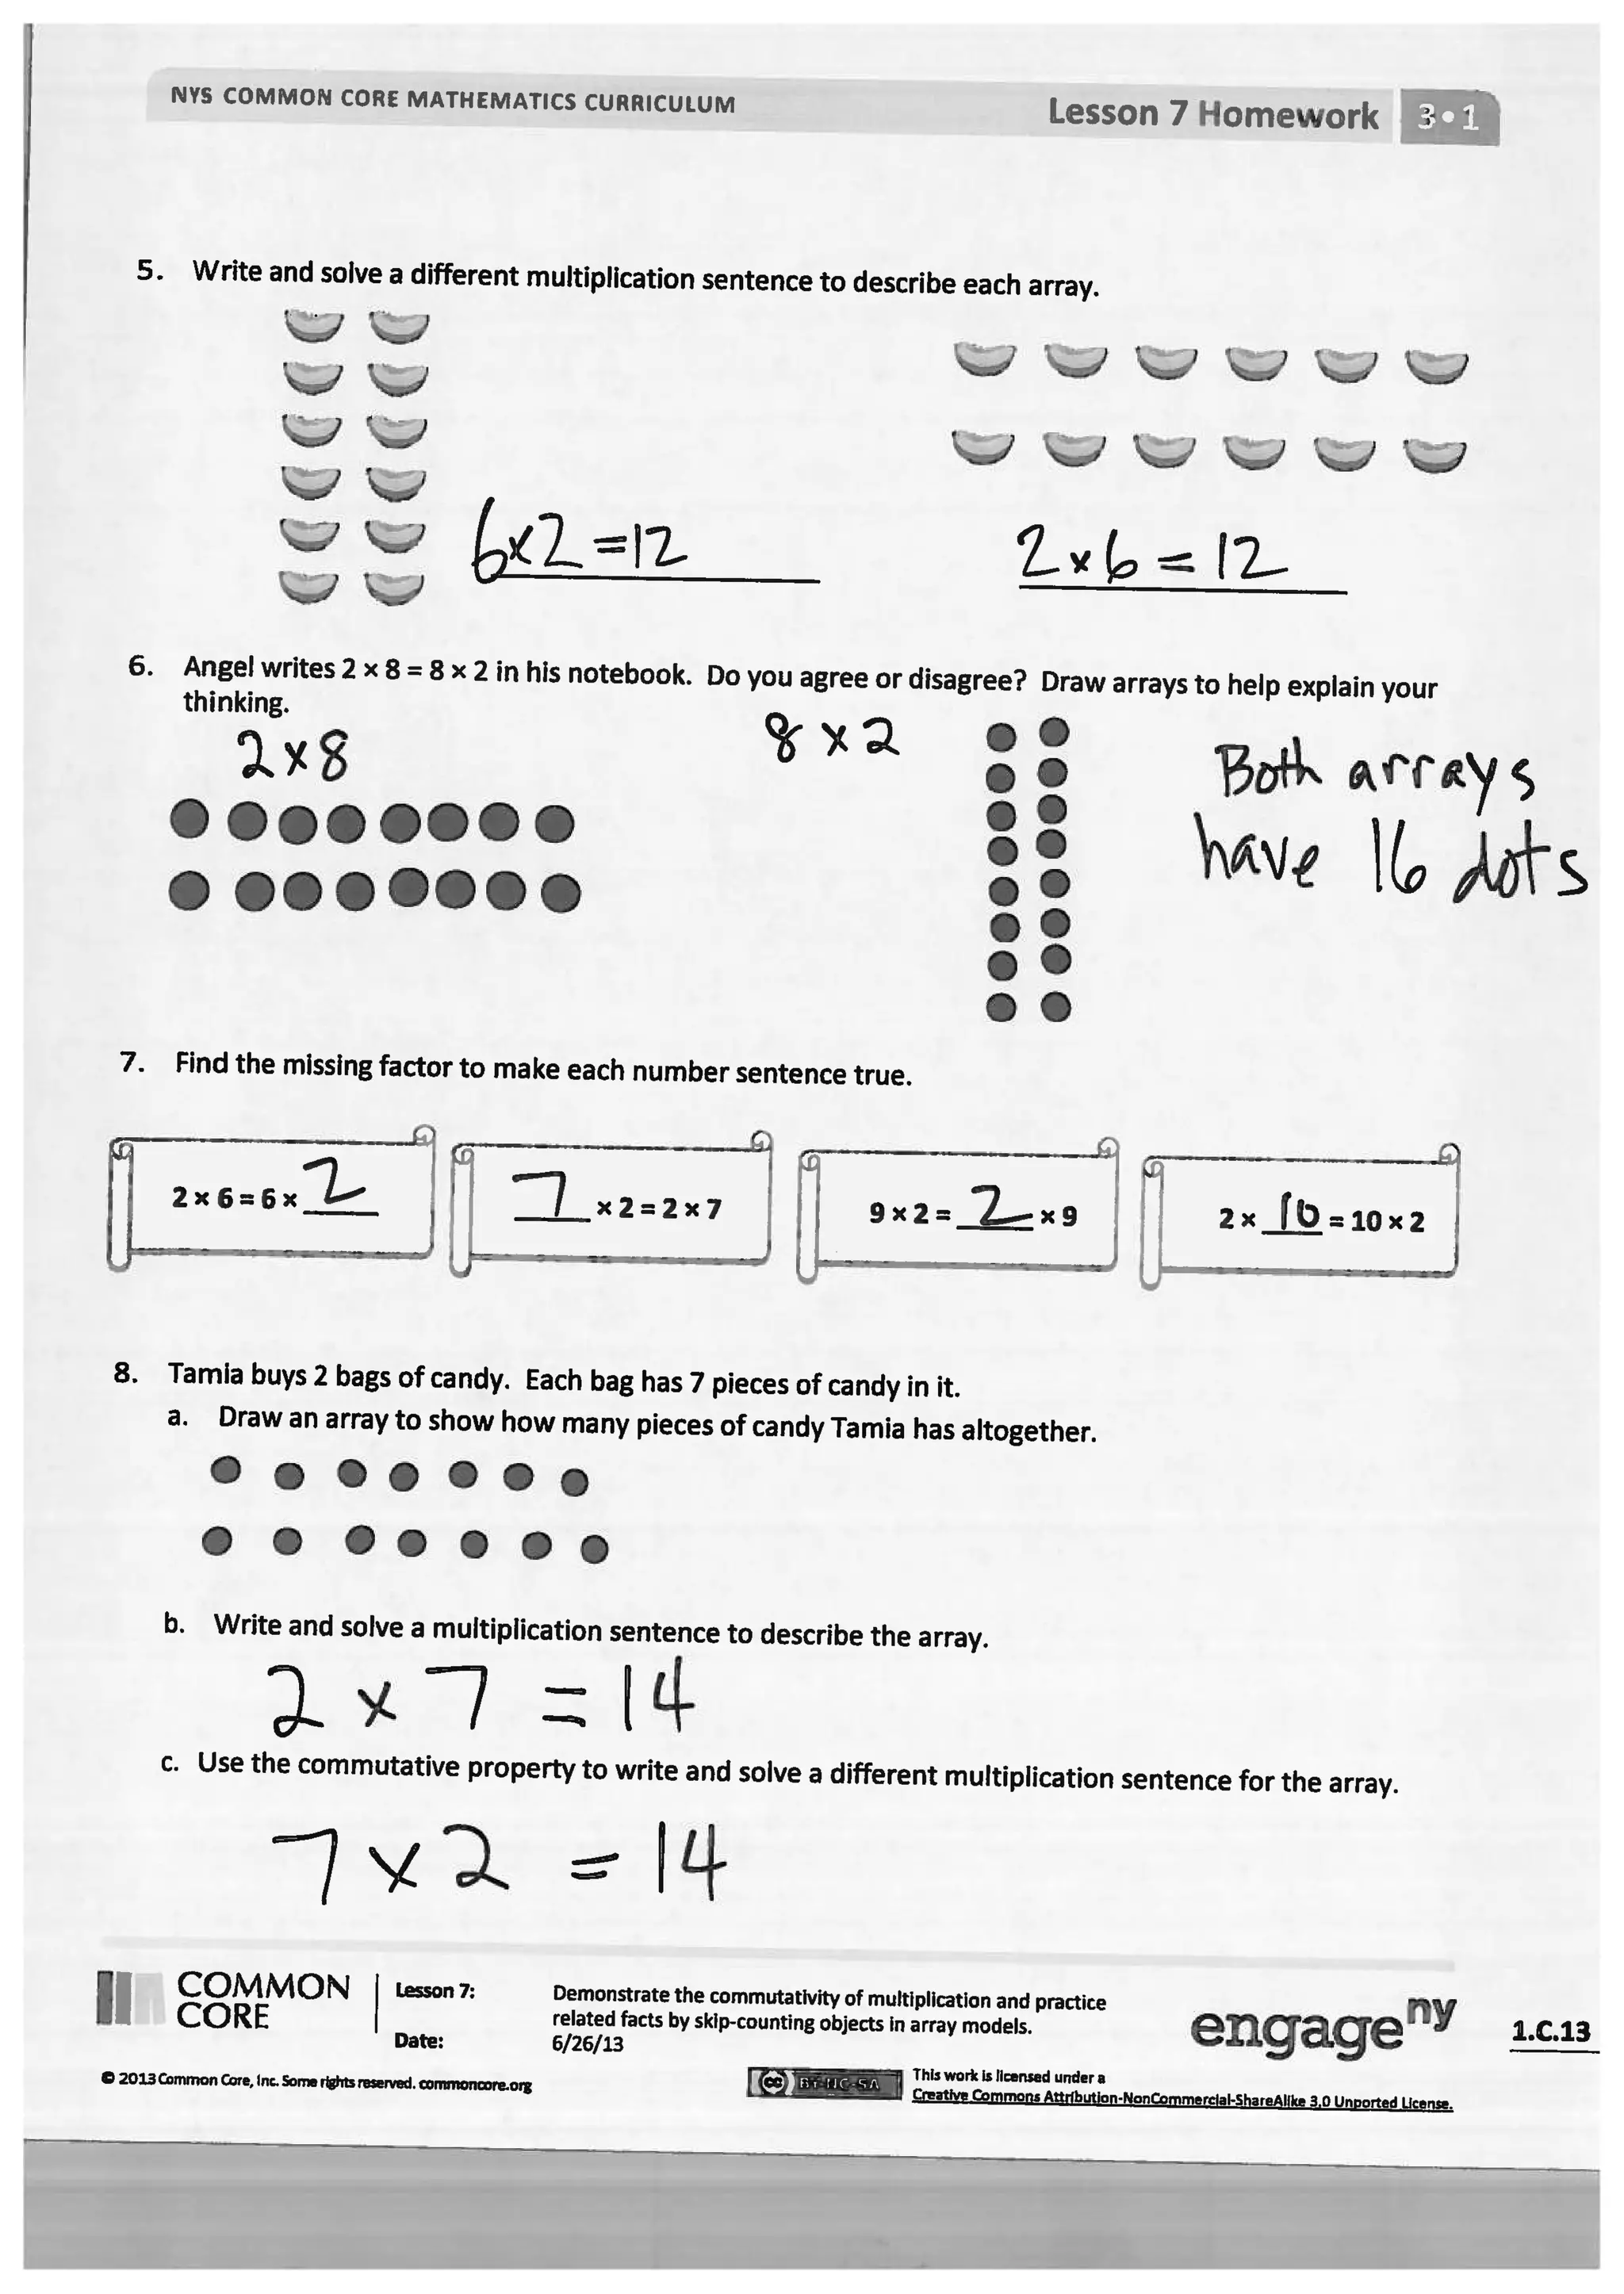 NYS COMMON CORE MATHEMATICS CURRICULUM
Lesson 7 Homework 3•1
5. Write and solve a different multiplication sentence to describe each array.
6x2=12
2x6=12
6. Angel writes 2 x 8 = 8 x 2 in his notebook. Do you agree or disagree? Draw arrays to help explain your
thinking.
2x8
8 x 2
Both arrays
have 16 dots
7. Find the missing factor to make each number sentence true.
2 x 6 = 6 x 2
7 x 2 = 2 x 7
9 x 2 = 2 x 9
2 x 10 = 10 x 2
8. Tamia buys 2 bags of candy. Each bag has 7 pieces of candy in it.
a. Draw an array to show how many pieces of candy Tamia has altogether.
b. Write and solve a multiplication sentence to describe the array.
2 x 7 = 14
c. Use the commutative property to write and solve a different multiplication sentence for the array.
7 x 2 = 14
COMMON
CORE
Lesson 7:
Date:
Demonstrate the commutativity of multiplication and practice
related facts by skip-counting objects in array models.
6/26/13
engage ny
1.C.13
© 2013 Common Core, Inc. Some rights reserved. commoncore.org
cc BY-NC-SA
This work is licensed under a
Creative Commons Attribution-NonCommercial-ShareAlike 3.0 Unported License.